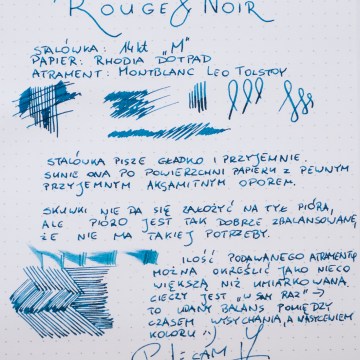 ROUGE & NOIR
STALÓWKA: 14kt „M"
PAPIER: RHODIA DOTPAD
ATRAMENT: MONTBLANC LEO TOLSTOY
STALÓWKA PISZE GŁADKO I PRZYJEMNIE.
SUNIE ONA PO POWIERZCHNI PAPIERU Z PEWNYM
PRZYJEMNYM AKSAMITNYM OPOREM.
SKUWKI NIE DA SIĘ ZAŁOŻYĆ NA TYŁ PIÓRA,
ALE PIÓRO JEST TAK DOBRZE ZBALANSOWANE,
ŻE NIE MA TAKIEJ POTRZEBY.
ILOŚĆ PODAWANEGO ATRAMENTU
MOŻNA OKREŚLIĆ JAKO NIECO
WIĘKSZĄ NIŻ UMIARKOWANA.
CIECZY JEST „W SAM RAZ" →
TO UDANY BALANS POMIĘDZY
CZASEM WYSYCHANIA, A NASYCENIEM
KOLORU :)
POLECAM